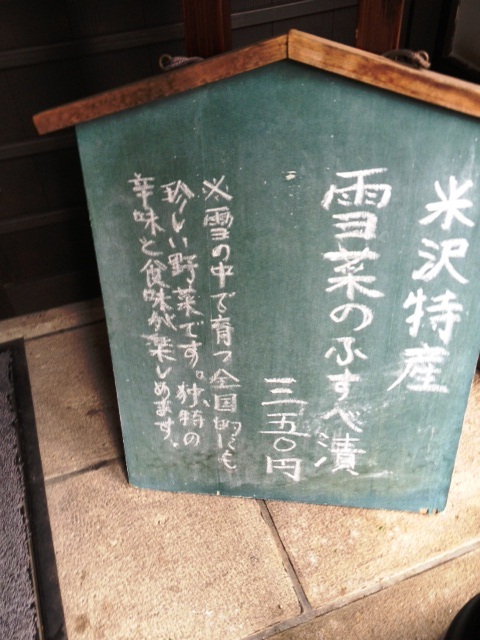 米沢特産
雪菜のふすべ漬
三五〇円
※雪の中で育つ全国的にも
珍しい野菜です。独特の
辛味と食味が楽しめます。